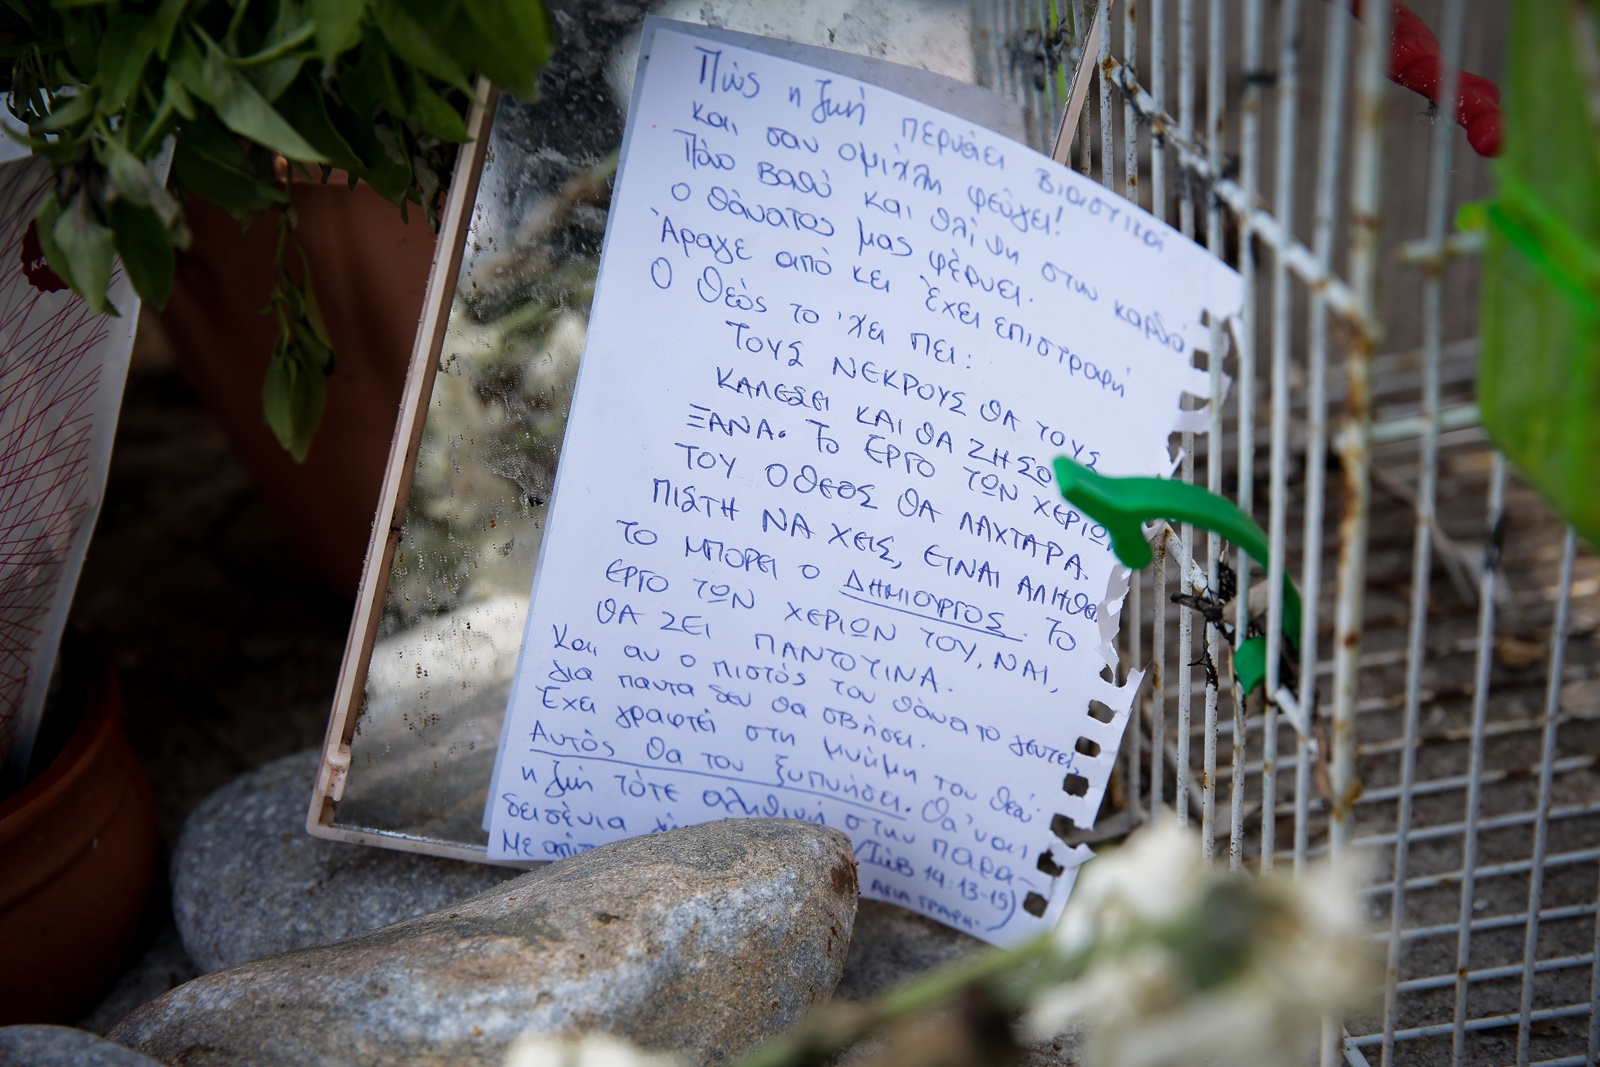 Πώς η ζωή περνάει βιαστική
και σαν ομίχλη φεύγει!
Πόνο βαθύ και θλίψη στην καρδιά
ο θάνατος μας φέρνει.
Άραγε από κει έχει επιστροφή
Ο Θεός το 'χει πει:
ΤΟΥΣ ΝΕΚΡΟΥΣ ΘΑ ΤΟΥΣ
ΚΑΛΕΣΕΙ ΚΑΙ ΘΑ ΖΗΣΟ
ΞΑΝΑ. ΤΟ ΕΡΓΟ ΤΩΝ ΧΕΡΙΩΝ
ΤΟΥ Ο ΘΕΟΣ ΘΑ ΛΑΧΤΑΡΑ.
ΠΙΣΤΗ ΝΑ ΧΕΙΣ, ΕΙΝΑΙ ΑΛΗΘΕΙ
ΤΟ ΜΠΟΡΕΙ Ο ΔΗΜΙΟΥΡΓΟΣ. ΤΟ
ΕΡΓΟ ΤΩΝ ΧΕΡΙΩΝ ΤΟΥ, ΝΑΙ,
ΘΑ ΖΕΙ ΠΑΝΤΟΤΙΝΑ.
Και αν ο πιστός του θάνατο γευτεί,
για παντα δεν θα σβήσει.
Έχει γραφτεί στη μνήμη του Θεού.
Αυτός θα τον ξυπνήσει. Θα 'ναι
η ζωή τότε αληθινή στην παρα-
δεισένια
Με
(Ιώβ 14:13-15)
ΑΓΙΑ ΓΡΑΦΗ.